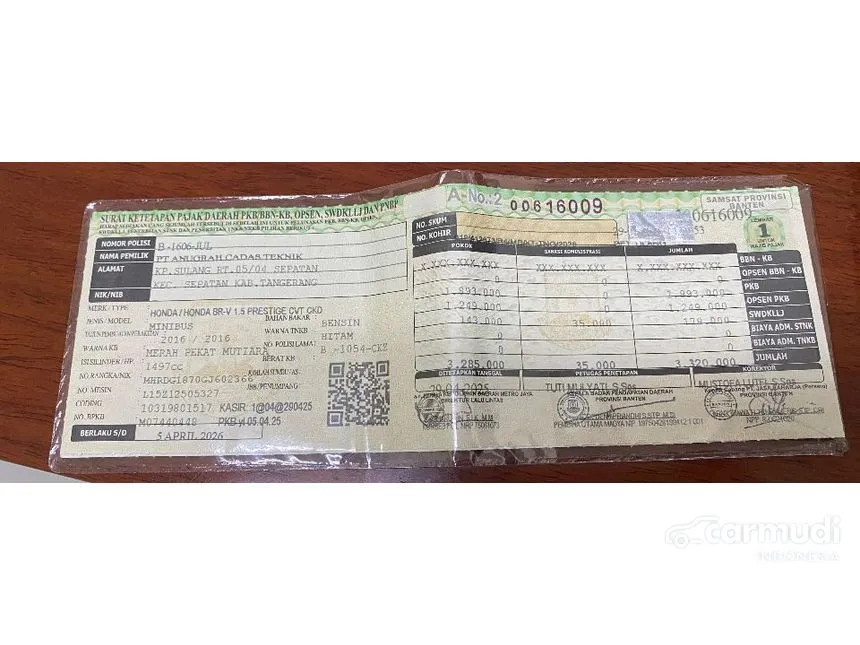 SURAT KETETAPAN PAJAK DAERAH PKB/BBN-KB, OPSEN, SWDKLLJ DAN PNBP
A-No.:2 00616009
SAMSAT PROVINSI BANTEN
0616009
LEMBAR 1 UNTUK WAJIB PAJAK
NOMOR POLISI B -1606-JUL
NAMA PEMILIK PT ANUGRAH CADAS TEKNIK
ALAMAT KP.SULANG RT.05/04 SEPATAN
KEC. SEPATAN KAB.TANGERANG
NIK/NIB
MERK / TYPE HONDA / HONDA BR-V 1.5 PRESTIGE CVT CKD
JENIS / MODEL MINIBUS
2016 / 2016
WARNA KB MERAH PEKAT MUTIARA
ISI SILINDER/HP. 1497cc
NO.RANGKA/NIK MHRDG1870GJ602366
NO. MESIN L15Z12505327
CODING 10319801517 KASIR 1@04@290425
NO. BPKB M07440448 PKB yl 05.04.25
BERLAKU S/D 5 APRIL 2026
BAHAN BAKAR BENSIN
WARNA TNKB HITAM
NO. POLISI (LAMA) B -1054-CKZ
BERAT KB
JML PENUMPANG
NO. SKUM
NO. KOHIR
POKOK SANKSI ADMINISTRASI JUMLAH
X.XXX.XXX.XXX XXX.XXX.XXX X.XXX.XXX.XXX BBN - KB
0 OPSEN BBN - KB
1.893.000 0 1.893.000 PKB
1.249.000 0 1.249.000 OPSEN PKB
143.000 35.000 178.000 SWDKLLJ
0 0 0 BIAYA ADM. STNK
0 0 0 BIAYA ADM. TNKB
3.285.000 35.000 3.320.000 JUMLAH
DITETAPKAN TANGGAL PETUGAS PENETAPAN KOREKTOR
29.04.2025 TUTI MULYATI, S.Sos MUSTOFA LUTFI, S.Sos
DIREKTUR LALU LINTAS
KEPALA BADAN PENDAPATAN DAERAH
PROVINSI BANTEN
PROVINSI BANTEN
carmudi
INDONESIA